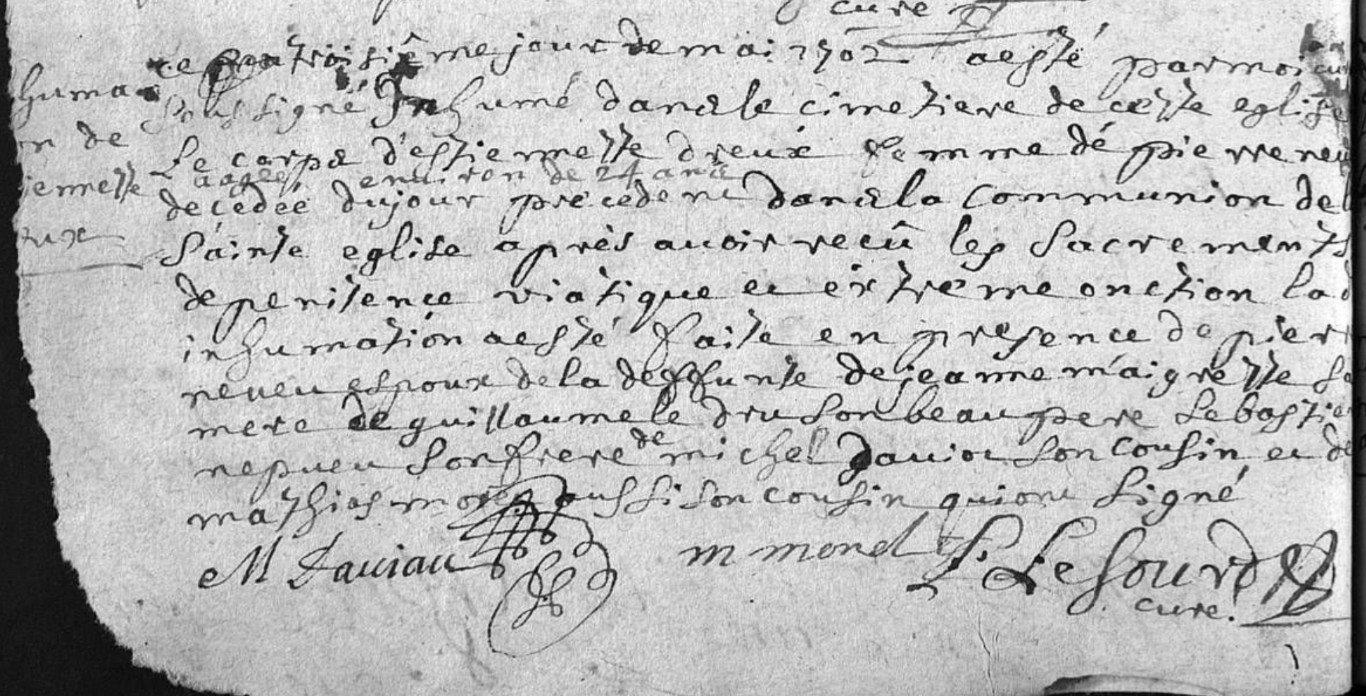 cure
huma
n de
iennette
eux
Le troisième jour de mai 1702 a esté par moi cur
soussigné Inhumé dans le cimetiere de cette eglise
Le corps d'estiennette dreux femme dé pierre neve
aagee environ de 24 ans
décédée du jour précédent dans la communion de l
Sainte eglise après avoir recû les Sacrements
de penitence viatique et extrême onction lad
inhumation a esté faite en presence de pierr
neveu espoux de la deffunte de jeanne maigrette sa
mere de guillaume le dru son beau pere Sebastie
nepveu son frere de michel daviau son cousin et de
mathias aussi son cousin qui ont Signé
M Daviau m morel Le Sourd
curé.